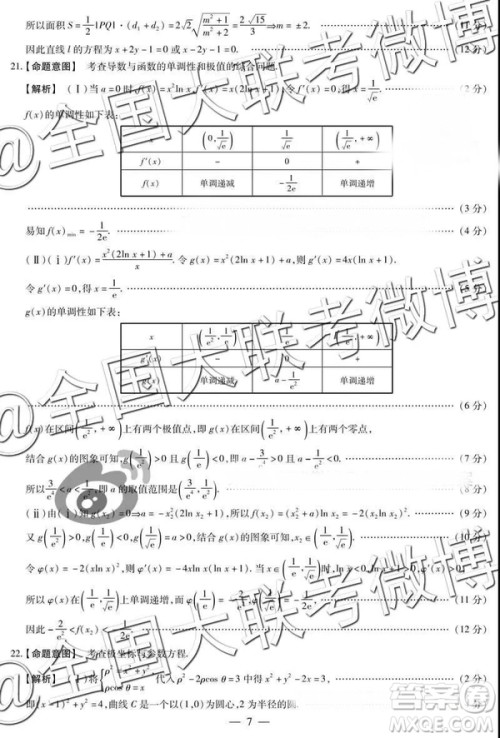 所以面积 S = 1/2 |PQ|·(d₁ + d₂) = 2√2 √((m²+1)/(m²+2)) = 2√15/3 ⇒ m = ±2.
因此直线 l 的方程为 x + 2y - 1 = 0 或 x - 2y - 1 = 0. (12 分)
21.【命题意图】 考查导数与函数的单调性和极值的结合问题.
【解析】 (Ⅰ)当 a = 0 时, f(x) = x²ln x, f′(x) = x(2ln x + 1), 令 f′(x) = 0, 得 x = 1/√e. (2 分)
f(x) 的单调性如下表:
x (0, 1/√e) 1/√e (1/√e, +∞)
f′(x) - 0 +
f(x) 单调递减 -1/2e 单调递增
(3 分)
易知 f(x)min = -1/2e. (4 分)
(Ⅱ)(ⅰ) f′(x) = (x²(2ln x + 1) + a)/x. 令 g(x) = x²(2ln x + 1) + a, 则 g′(x) = 4x(ln x + 1).
令 g′(x) = 0, 得 x = 1/e. (5 分)
g(x) 的单调性如下表:
x (1/e², 1/e) 1/e (1/e, +∞)
g′(x) - 0 +
g(x) 单调递减 a - 1/e² 单调递增
(6 分)
f(x) 在区间 (1/e², +∞) 上有两个极值点, 即 g(x) 在区间 (1/e², +∞) 上有两个零点,
结合 g(x) 的图象可知, g(1/e²) > 0 且 g(1/e) < 0, 即 a - 3/e⁴ > 0 且 a - 1/e² < 0. (7 分)
所以 3/e⁴ < a < 1/e², 即 a 的取值范围是 (3/e⁴, 1/e²). (8 分)
(ⅱ) 由(ⅰ)知 g(x₂) = 0, a = -x₂²(2ln x₂ + 1), 所以 f(x₂) = (x₂² + a)ln x₂ = -2(x₂ln x₂)². (9 分)
又 g(1/e²) > 0, g(1/e) < 0, g(1/√e) > 0, 结合 g(x) 的图象可知, x₂ ∈ (1/e, 1/√e). (10 分)
令 φ(x) = -2(xln x)², 则 φ′(x) = -4xln x(ln x + 1). 当 x ∈ (1/e, 1/√e) 时, ln x < 0, ln x + 1 > 0, φ′(x) > 0,
所以 φ(x) 在 (1/e, 1/√e) 上单调递增, 而 φ(1/e) (11 分)
因此 -2/e² < f(x₂) < (12 分)
22.【命题意图】 考查极坐标与参数方程.
【解析】 (Ⅰ)将 { ρ² = x² + y², ρcos θ = x 代入 ρ² - 2ρcos θ = 3 中得 x² + y² - 2x = 3, (2 分)
即 (x - 1)² + y² = 4, 曲线 C 是一个以 (1,0) 为圆心, 2 为半径的圆.
— 7 —
@全国大联考微博
@全国大联考微博